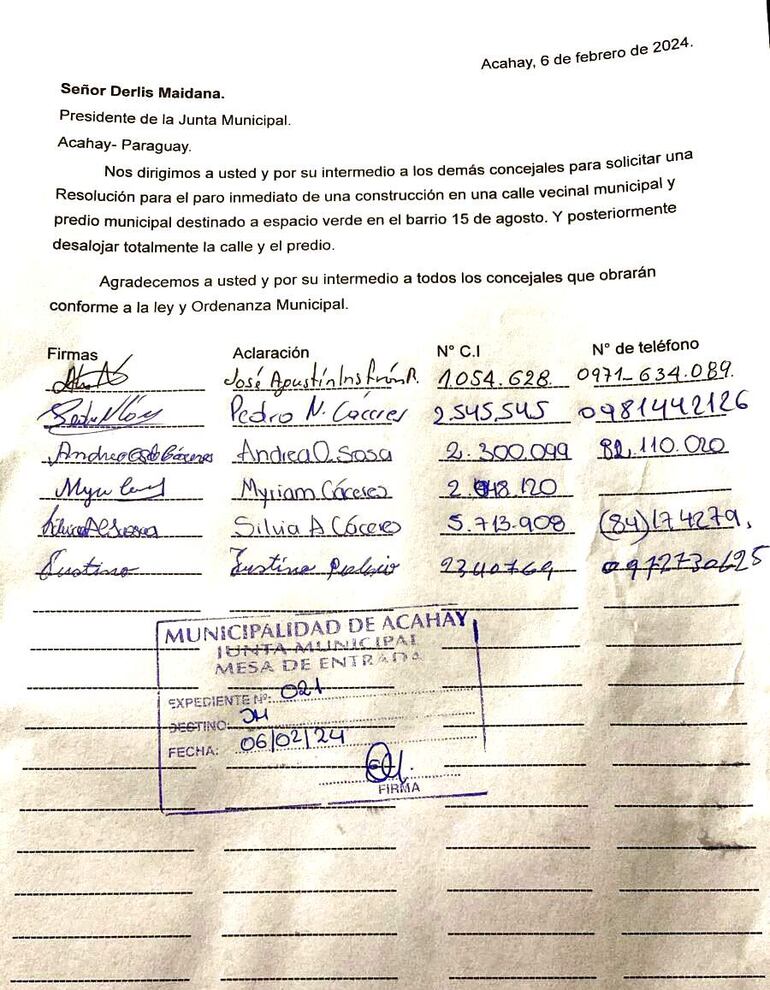 Acahay, 6 de febrero de 2024.
Señor Derlis Maidana.
Presidente de la Junta Municipal.
Acahay- Paraguay.
Nos dirigimos a usted y por su intermedio a los demás concejales para solicitar una
Resolución para el paro inmediato de una construcción en una calle vecinal municipal y
predio municipal destinado a espacio verde en el barrio 15 de agosto. Y posteriormente
desalojar totalmente la calle y el predio.
Agradecemos a usted y por su intermedio a todos los concejales que obrarán
conforme a la ley y Ordenanza Municipal.
Firmas Aclaración N° C.I N° de teléfono
José Agustín 1.054.628 0971-634.089.
Pedro N. Cáceres 2.545.545 0981442126
Andrea O. Sosa 2.300.099 82.110.020
Myriam Cáceres
Silvia A Cáceres 5.713.908 (84)174279.
Justino 2340769 0972730625
MUNICIPALIDAD DE ACAHAY
JUNTA MUNICIPAL
MESA DE ENTRADA
EXPEDIENTE N°: 021
DESTINO: JM
FECHA: 06/02/24
FIRMA